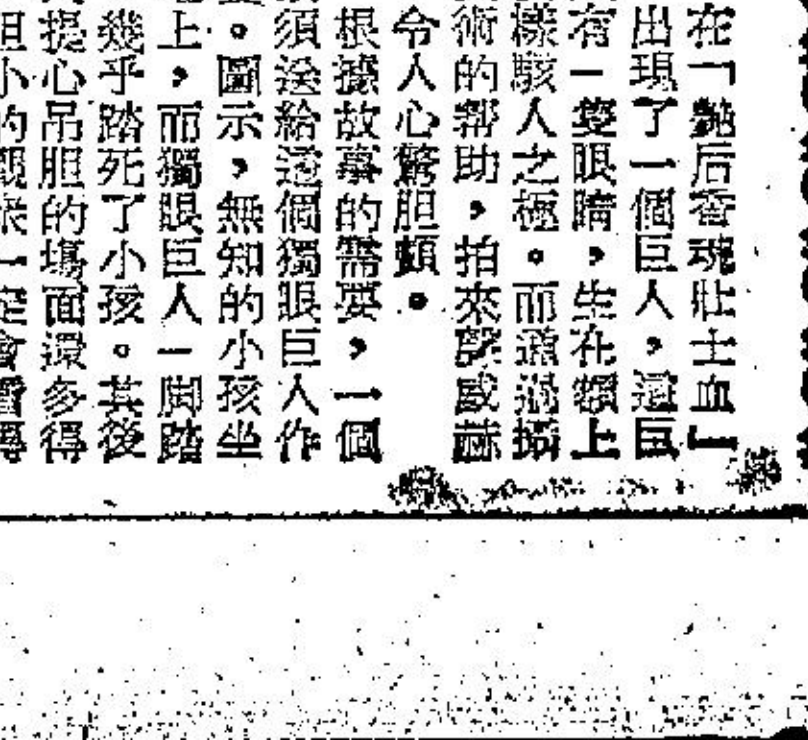 在「艷后香魂壯士血」
出現了一個巨人，這巨
有一隻眼睛，生在額上
樣駭人之極。而通過攝
術的幫助，拍來聲威赫
令人心驚胆顫。
根據故事的需要，一個
須送給這個獨眼巨人作
。圖示，無知的小孩坐
上，而獨眼巨人一脚踏
幾乎踏死了小孩。其後
提心吊胆的塲面還多得
胆小的觀衆一定會